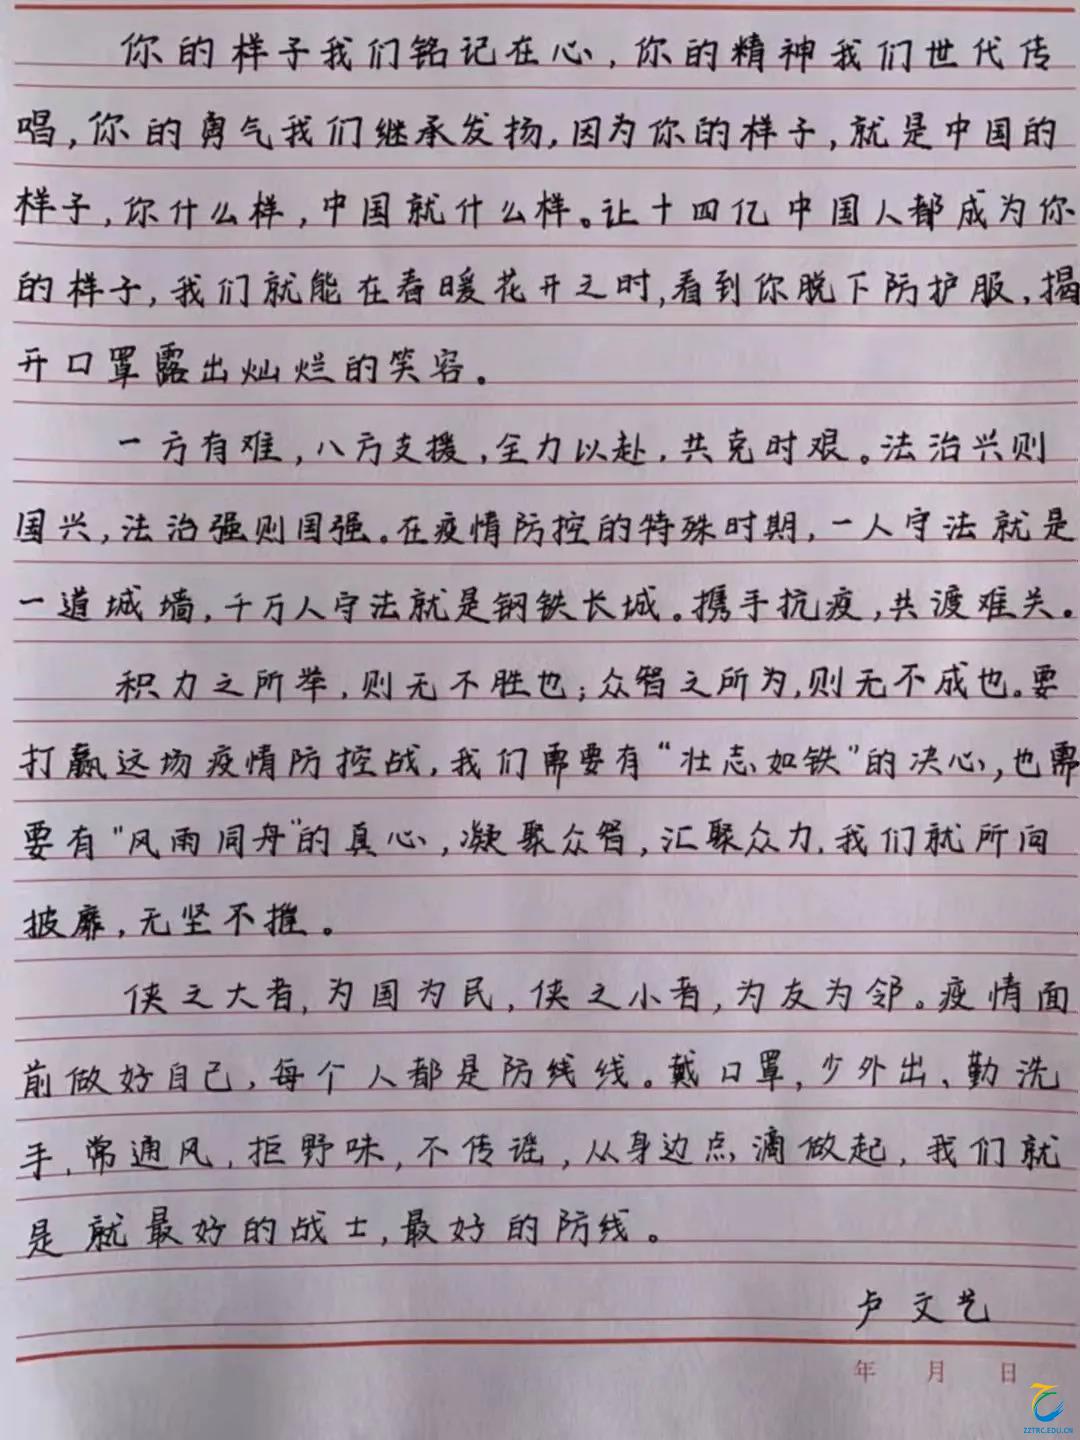 你的样子我们铭记在心，你的精神我们世代传
唱，你的勇气我们继承发扬，因为你的样子，就是中国的
样子，你什么样，中国就什么样。让十四亿中国人都成为你
的样子，我们就能在春暖花开之时，看到你脱下防护服，揭
开口罩露出灿烂的笑容。
一方有难，八方支援，全力以赴，共克时艰。法治兴则
国兴，法治强则国强。在疫情防控的特殊时期，一人守法就是
一道城墙，千万人守法就是钢铁长城。携手抗疫，共渡难关。
积力之所举，则无不胜也；众智之所为，则无不成也。要
打赢这场疫情防控战，我们需要有“壮志如铁”的决心，也需
要有“风雨同舟”的真心，凝聚众智，汇聚众力，我们就所向
披靡，无坚不摧。
侠之大者，为国为民，侠之小者，为友为邻。疫情面
前做好自己，每个人都是防线线。戴口罩，少外出、勤洗
手，常通风，拒野味，不传谣，从身边点滴做起，我们就
是就最好的战士，最好的防线。
卢文艺
年 月 日
ZZTRC.EDU.CN